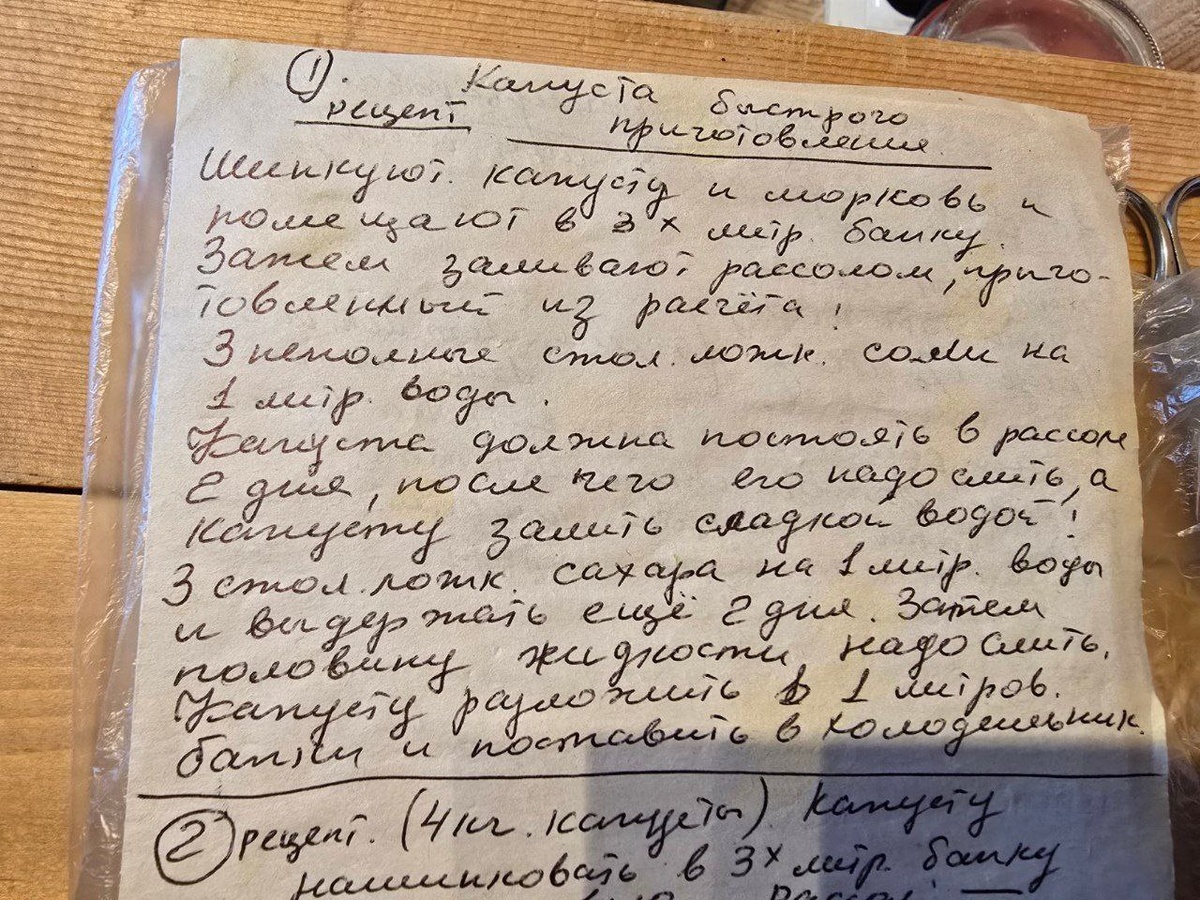 1). Капуста быстрого
рецепт приготовления.
Шинкуют капусту и морковь и
помещают в 3х литр. банку.
Затем заливают рассолом, приго-
товленный из расчёта:
3 неполные стол. ложк. соли на
1 литр. воды.
Капуста должна постоять в рассоле
2 дня, после чего его надо слить, а
капусту залить сладкой водой:
3 стол. ложк. сахара на 1 литр. воды
и выдержать ещё 2 дня. Затем
половину жидкости надо слить.
Капусту разложить в 1 литров.
банки и поставить в холодильник.
2) рецепт. (4 кг. капусты). Капусту
нашинковать в 3х литр. банку
рассол: